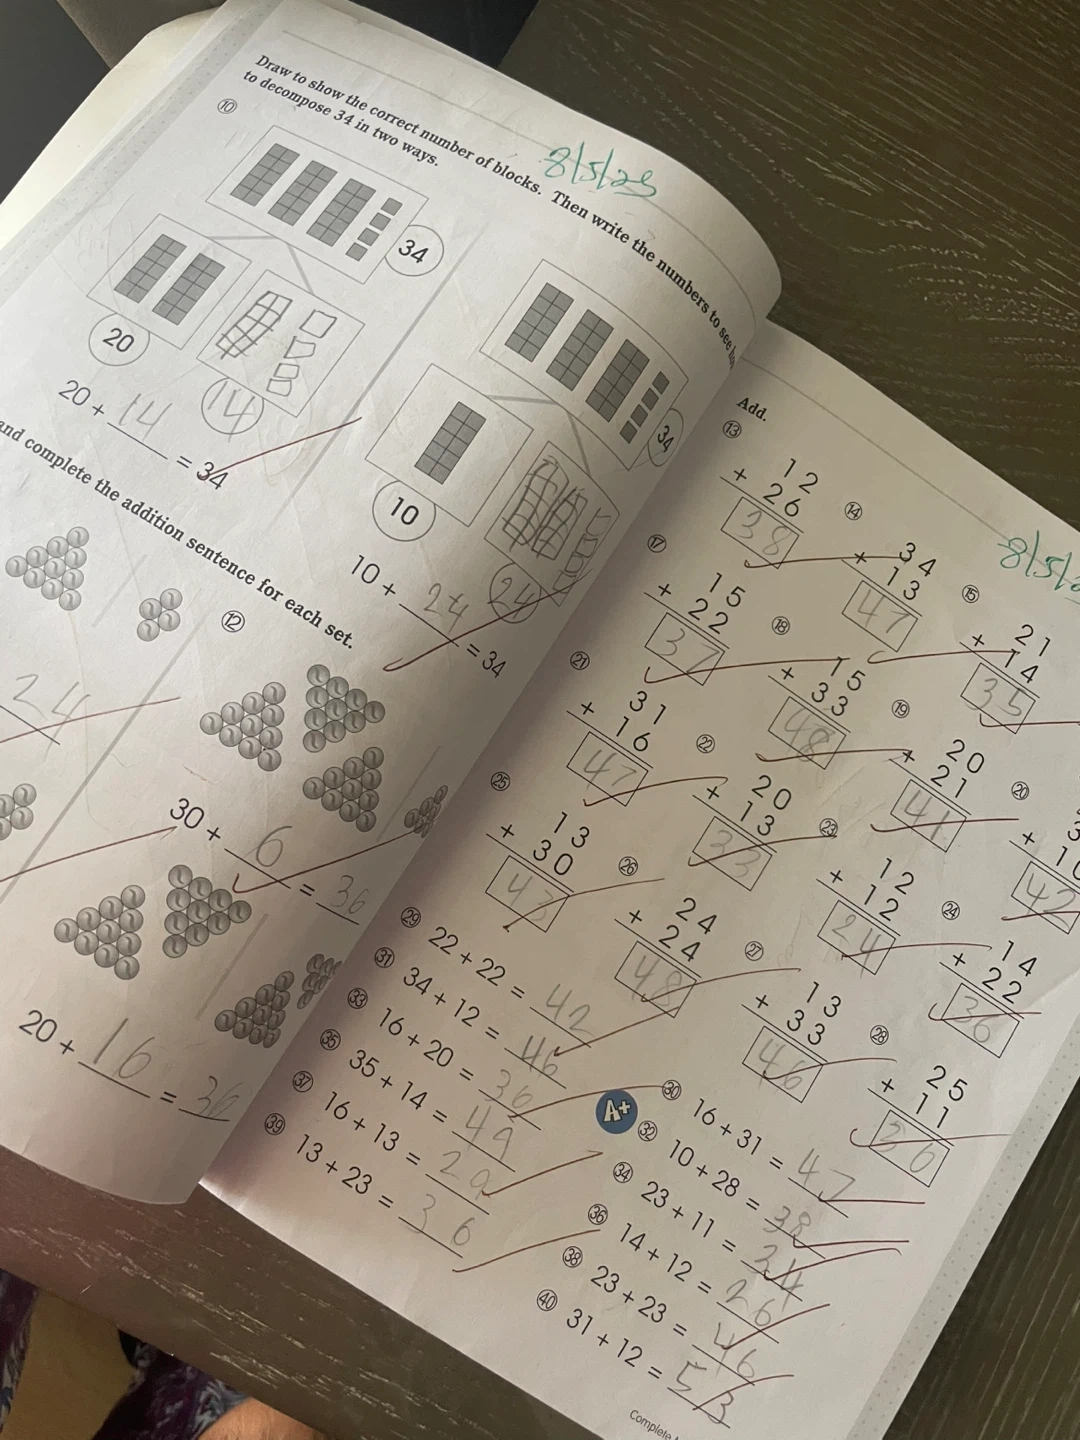 Draw to show the correct number of blocks. Then write the numbers to see
to decompose 34 in two ways.
8/5/25
⑩
34
20
14
20 + 14 = 34
34
10
24
10 + 24 = 34
and complete the addition sentence for each set.
24
⑫
30 + 6 = 36
20 + 16 = 36
Add.
8/5/2
⑬
12
+ 26
38
⑭
34
+ 13
47
⑮
21
+ 14
35
⑰
15
+ 22
37
⑱
15
+ 33
48
⑲
20
+ 21
41
⑳
3
+ 10
42
㉑
31
+ 16
47
㉒
20
+ 13
33
㉓
12
+ 12
24
㉔
14
+ 22
36
㉕
13
+ 30
43
㉖
24
+ 24
48
㉗
13
+ 33
46
㉘
25
+ 11
36
㉙ 22 + 22 = 42
㉚ 16 + 31 = 47
㉛ 34 + 12 = 46
㉜ 10 + 28 = 38
㉝ 16 + 20 = 36
㉞ 23 + 11 = 34
㉟ 35 + 14 = 49
㊱ 14 + 12 = 26
㊲ 16 + 13 = 29
㊳ 23 + 23 = 46
㊴ 13 + 23 = 36
㊵ 31 + 12 = 53
A+
Complete